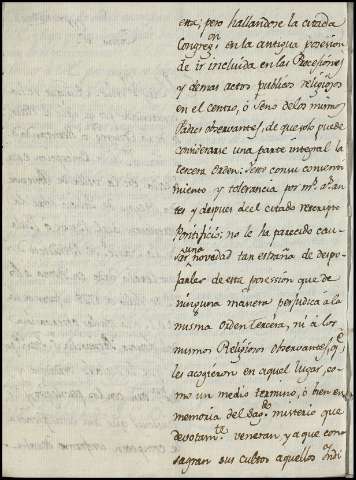 era, pero hallandose la citada
Congreg.on en la antigua posesion
de ir incluida en las Procesiones
y demas actos publicos religiosos
en el centro, ó seno de los mismos
Padres observantes, de que solo puede
considerarse una parte integral la
tercera Orden: Y con su consenti
miento y tolerancia por m.s a.s an
tes y despues de el citado rescripto
Pontificio: no le ha parecido cau
sar una novedad tan estraña de despo
jarles de esta posession que de
ninguna manera perjudica a la
misma Orden Tercera, ni á los
mismos Religiosos observantes, q.e
les acogieron en aquel lugar, co
mo un medio termino, ó bien en
memoria del Sag.do misterio que
devotam.te veneran y a que con
sagran sus cultos aquellos Indi